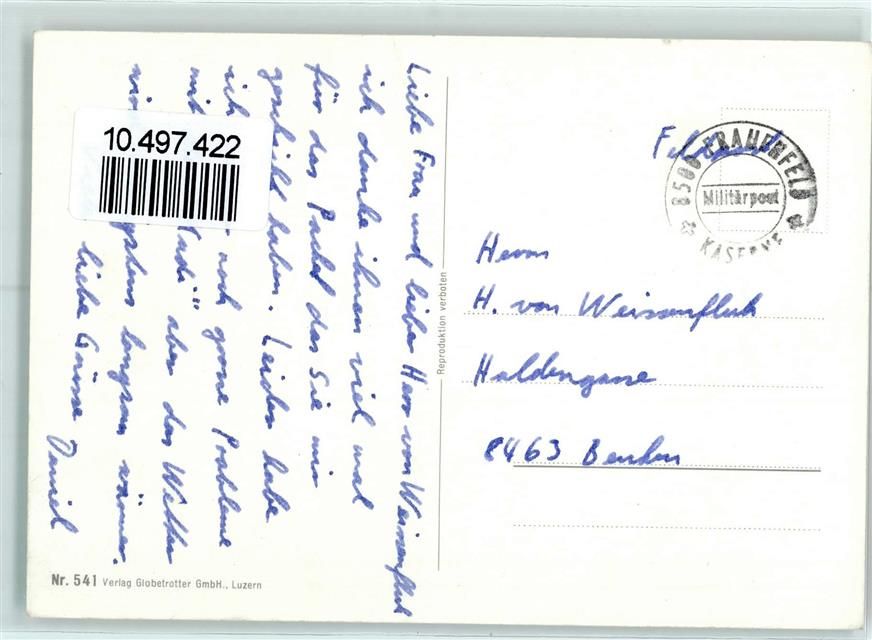 Liebe Frau und lieber Herr von Weissenfluh
ich danke ihnen viel mal
für das Packet das Sie mir
geschickt haben. Leider habe
ich noch grosse Probleme
mit " aber das Wetter
wird langsam wärmer.
liebe Grüsse Daniel
10.497.422
Nr. 541 Verlag Globetrotter GmbH., Luzern
Reproduktion verboten
Feldpost
8500 FRAUENFELD
Militärpost
KASERNE
Herrn
H. von Weissenfluh
Haldengasse
8463 Benken